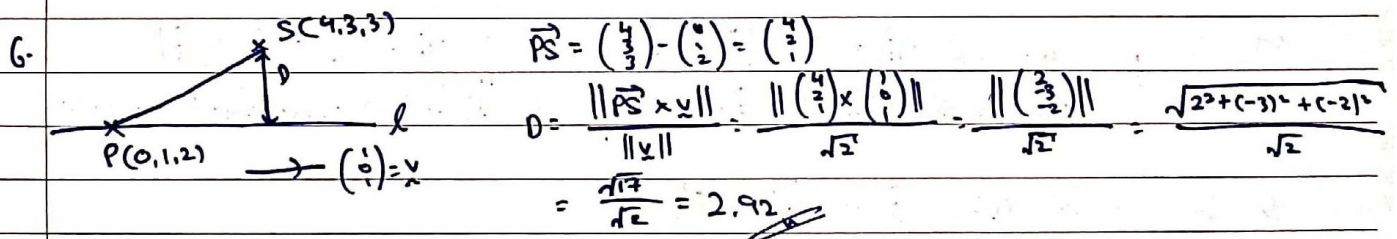 6.
S(4,3,3)
D
l
P(0,1,2)
→ (1 0 1) = v
PS→ = (4 3 3) - (0 1 2) = (4 2 1)
D = ||PS→ × v|| / ||v|| = ||(4 2 1) × (1 0 1)|| / √2 = ||(2 -3 -2)|| / √2 = √(2² + (-3)² + (-2)²) / √2
= √17 / √2 = 2.92